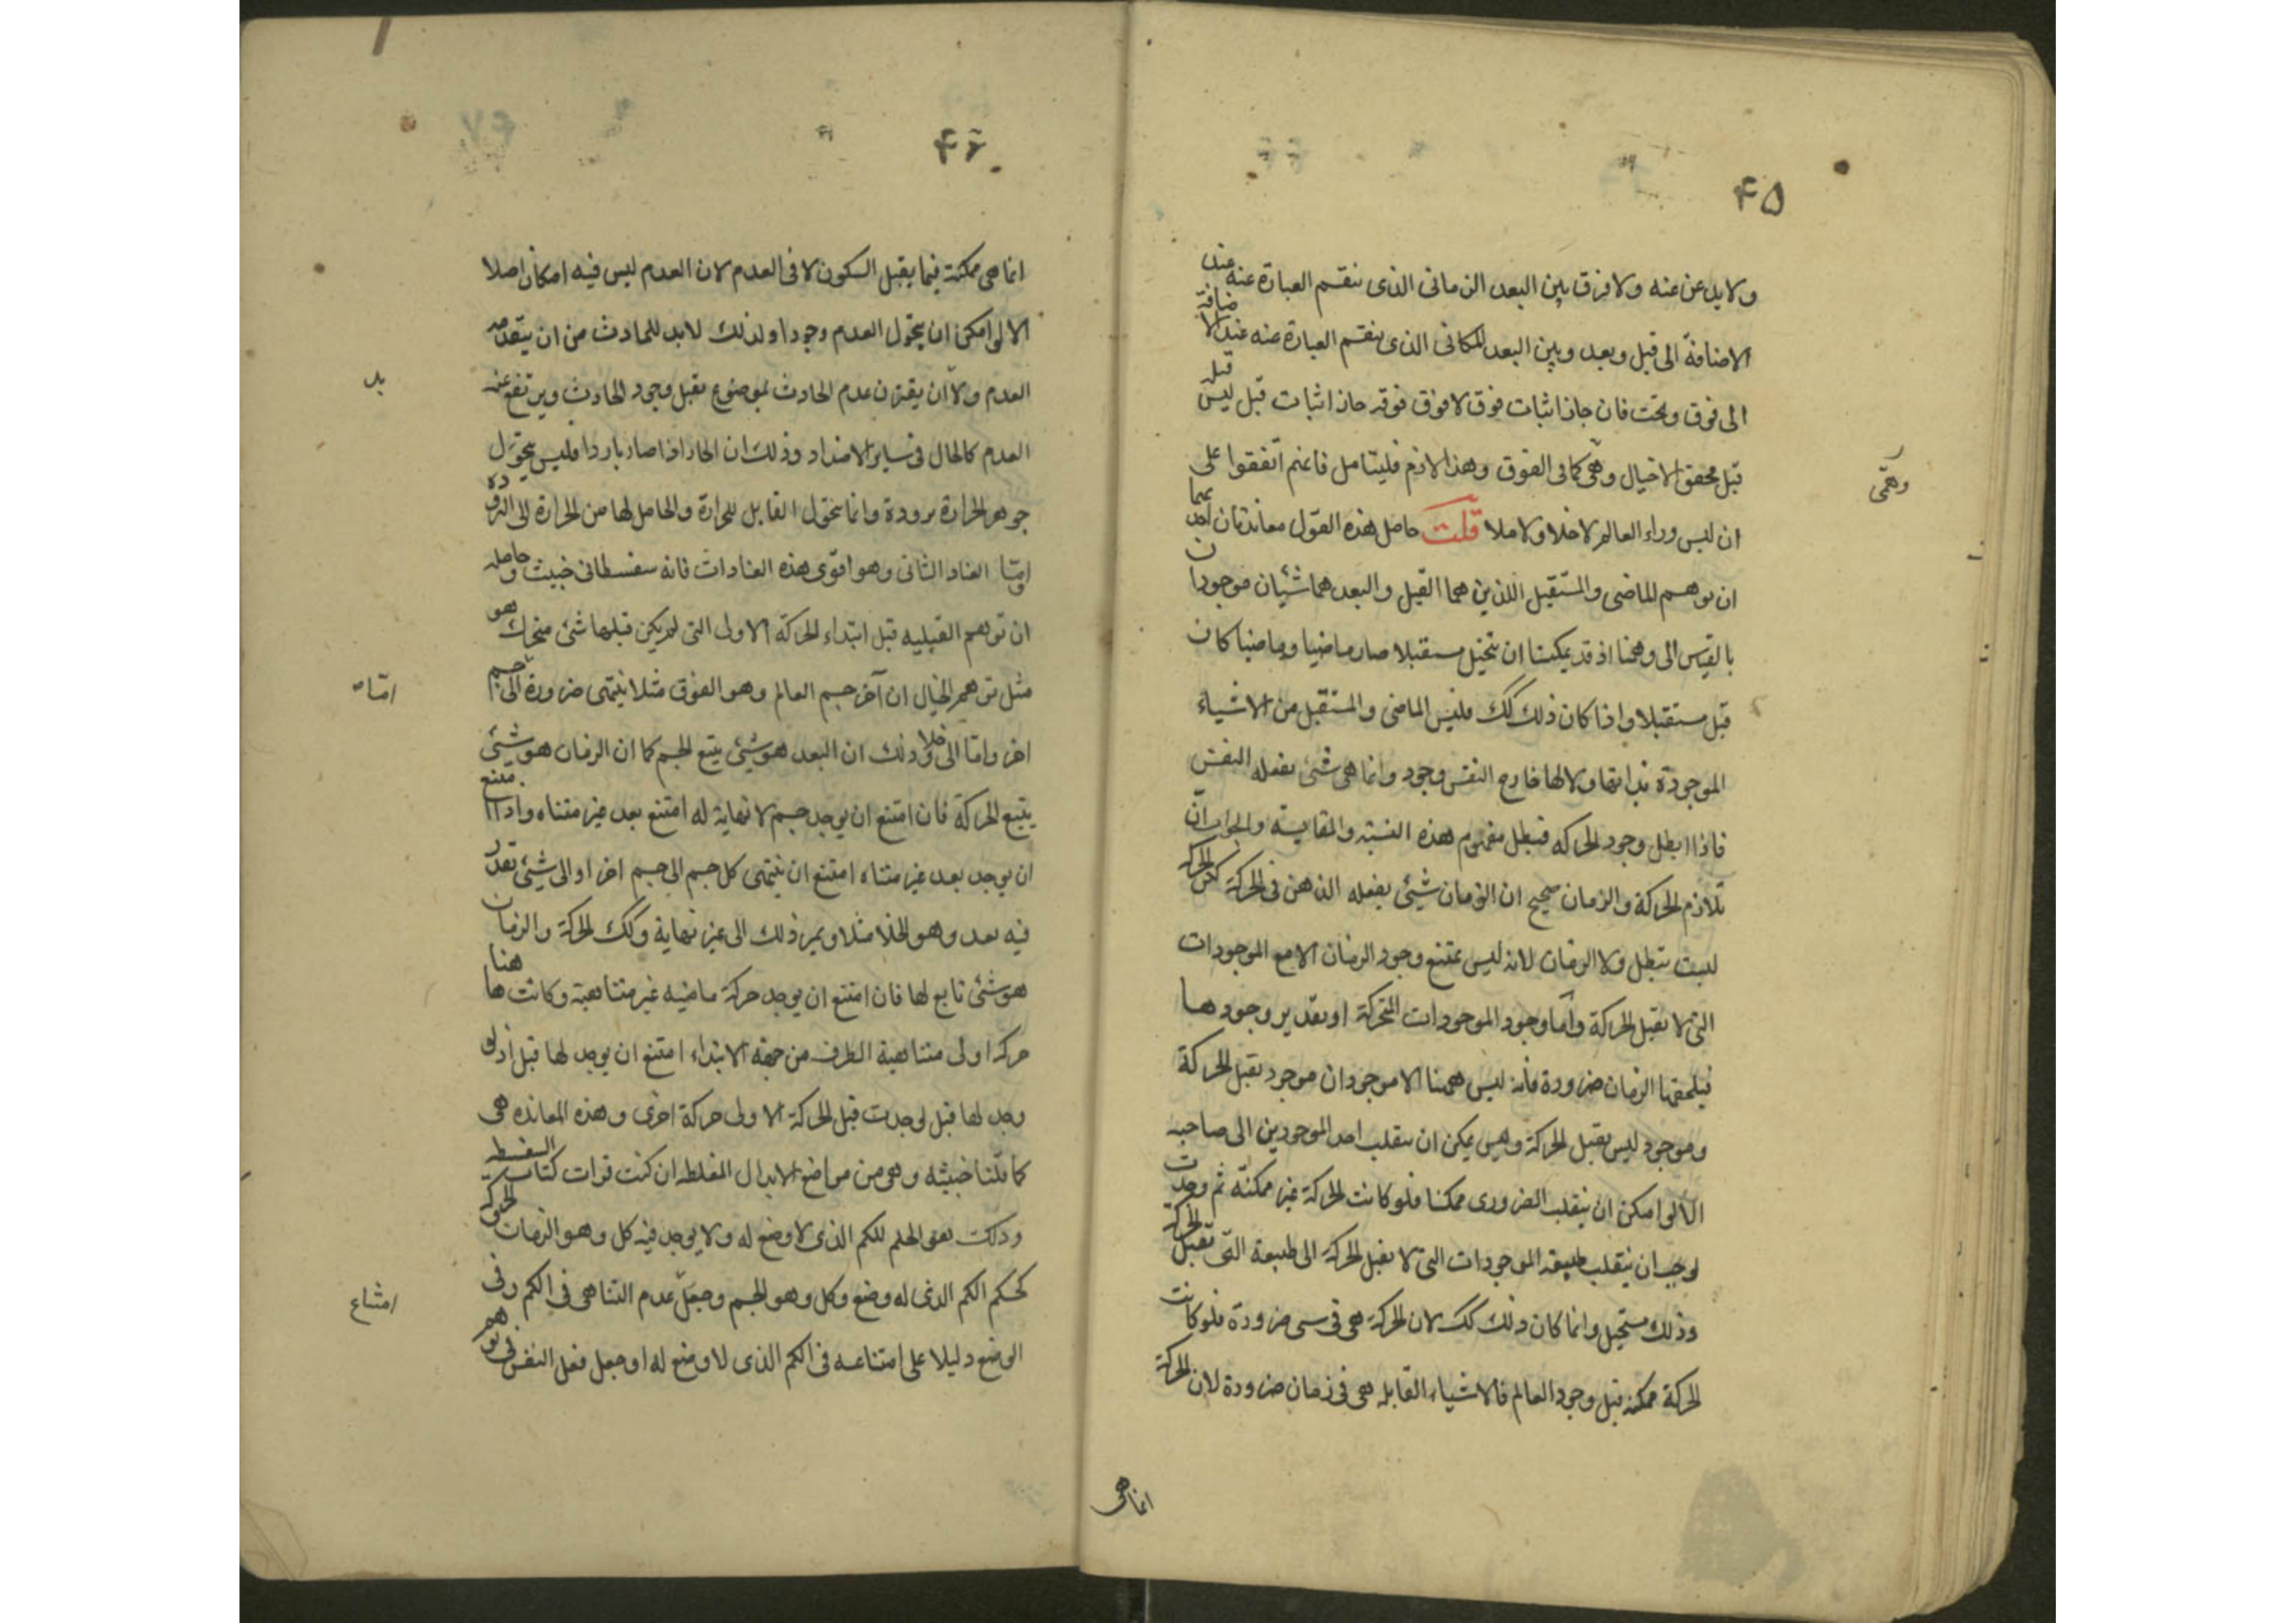 ۴۵
ولا بدل عن عنه ولا فرق بين البعد الزمانى الذى ننقسم العبارة عنه عند
الاضافة الى قبل وبعد وبين البعد المكانى الذى ينقسم العبارة عنه عند الاضافة
الى فوق وتحت فان جاز اثبات فوق لا فوق فوقه جاز اثبات قبل ليس قبله
قبل محقق الا خيال وهمى كما فى الفوق وهذا لازم فليتامل فانهم اتفقوا على
وهمى
ان ليس وراء العالم لا خلا ولا ملا قلت حاصل هذه القول معاندتان احديهما
ان توهم الماضى والمستقبل اللذين هما القبل والبعد هما شيئان موجودان
بالقيس الى وهمنا اذ قد يمكننا ان نتخيل مستقبلا صار ماضيا وماضيا كان
قبل مستقبلا واذا كان ذلك كك فليس الماضى والمستقبل من الاشياء
الموجودة بذاتها ولا لها خارج النفس وجود وانما هى شئ يفعله النفس
فاذا ابطل وجود الحركه فبطل مفهوم هذه النسبة والمقايسة والجواب ان
تلازم الحركة والزمان صحيح ان الزمان شيئ يفعله الذهن فى الحركة لكن الحركة
ليست تبطل ولا الزمان لانه ليس يمتنع وجود الزمان الا مع الموجودات
التى لا تقبل الحركة واما وجود الموجودات المتحركة او تقدير وجودها
فيلحقها الزمان ضرورة فانه ليس ههنا الا موجودان موجود يقبل الحركة
وموجود ليس يقبل الحركة وليس يمكن ان ينقلب احد الموجودين الى صاحبه
الا لو امكن ان ينقلب الضرورى ممكنا فلو كانت الحركة غير ممكنة ثم وجدت
لوجب ان ينقلب طبيعة الموجودات التى لا تقبل الحركة الى طبيعة التى تقبل الحركة
وذلك مستحيل وانما كان ذلك كك لان الحركة هى فى سى ضرورة فلو كانت
الحركة ممكنة قبل وجود العالم فالاشياء القابله هى فى زمان ضرورة لان الحركة
انما هى
۴۶
انما هى ممكنة فيما يقبل السكون لا فى العدم لان العدم ليس فيه امكان اصلا
الا لو امكن ان يتحول العدم وجودا ولذلك لا بد للحادث من ان يتقدمه
العدم ولا ان يقترن عدم الحادث بموضوع يقبل وجود الحادث ويرتفع عنه
بد
العدم كالحال فى ساير الاضداد وذلك ان الحار اذا صار باردا فليس يتحول
جوهر الحرارة برودة وانما يتحول القابل للحرارة والحامل لها من الحرارة الى البرودة
واما العناد الثانى وهو اقوى هذه العنادات فانه سفسطانى خبيث وحاصله
ان توهم القبليه قبل ابتداء الحركة الاولى التى لم يكن قبلها شئ متحرك هو
مثل توهم الخيال ان آخر جسم العالم وهو الفوق مثلا ينتهى ضرورة الى جسم
اما
اخر واما الى خلا وذلك ان البعد هو شيئ يتبع الجسم كما ان الزمان هو شيئ
يتبع الحركة فان امتنع ان يوجد جسم لا نهاية له امتنع بعد غير متناه واذا امتنع
ان يوجد بعد غير متناه امتنع ان ينتهى كل جسم الى جسم اخر او الى شيئ تقدر
فيه بعد وهو الخلا مثلا ويمر ذلك الى غير نهاية وكك الحركة والزمان
هو شئ تابع لها فان امتنع ان يوجد حركة ماضيه غير متناهية وكانت ههنا
حركه اولى متناهية الطرف من جهة الابتداء امتنع ان يوجد لها قبل اذ لو
وجد لها قبل لوجدت قبل الحركة الاولى حركة اخرى وهذه المعانده هى
كما قلنا خبيثه وهى من مواضع الابدال المغلطه ان كنت قرات كتاب السفسطه
وذلك الحكم للكم الذى لا وضع له ولا يوجد فيه كل وهو الزمان والحركة
كحكم الكم الذى له وضع وكل وهو الجسم وجعل عدم التناهى فى الكم وفى
امتناع
الوضع دليلا على امتناعه فى الكم الذى لا وضع له او جعل فعل النفس فى توهم